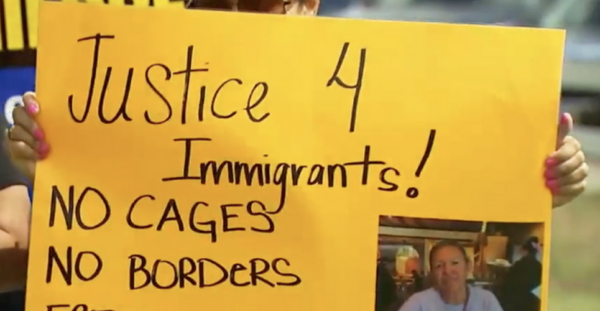 Justice 4
Immigrants!
NO CAGES
NO BORDERS